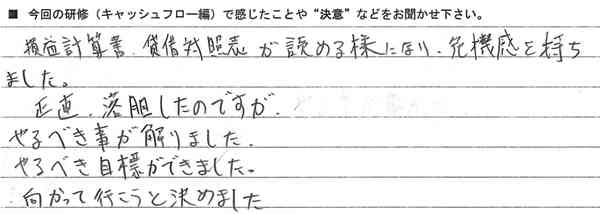 ■ 今回の研修（キャッシュフロー編）で感じたことや“決意”などをお聞かせ下さい。
損益計算書、貸借対照表が読める様になり、危機感を持ち
ました。
正直、落胆したのですが、
やるべき事が解りました。
やるべき目標ができました。
向かって行こうと決めました